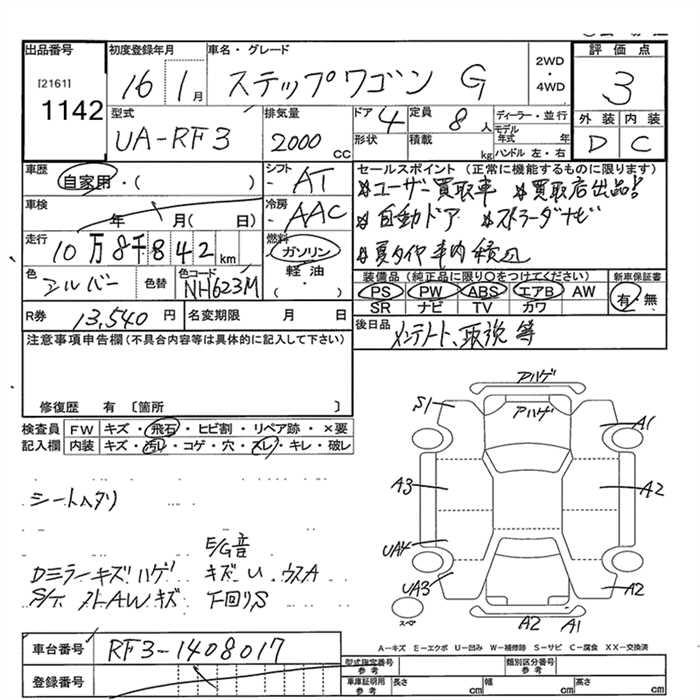 出品番号 初度登録年月 車名・グレード 2WD ・ 4WD 評価点
[2161] 1142 16 1月 ステップワゴン G 3
型式 排気量 ドア 4 定員 8人 ディーラー・並行 外装 内装
UA-RF3 2000cc 形状 積載 kg モデル年式 年 D C
ハンドル 左・右
車歴 自家用・( ) シフト AT セールスポイント (正常に機能するものに限ります)
車検 年 月( 日) 冷房 AAC
#ユーザー買取車 #買取店出品!!
#自動ドア
走行 10万8千842km 燃料 ガソリン 軽油・( )
色 シルバー 色替 色コード NH623M
装備品(純正品に限り○をつけてください) 新車保証書
PS PW ABS エアB AW 有・無
SR ナビ TV カワ
R券 13,540円 名変期限 月 日
後日品 メンテノート、取説 等
注意事項申告欄(不具合内容等は具体的に記入して下さい)
修復歴 有 〔箇所 〕
検査員記入欄 FW キズ・飛石・ヒビ割・リペア跡・×要
内装 キズ・汚レ・コゲ・穴・スレ・キレ・破レ
アハゲ
アハゲ
S1 A1
A3 A2
UA4
UA3 A2
スペア
A2 A1
シートヘタリ
E/G音
Dミラーキズハゲ キズU.ウスA
AWキズ 下回りS
A−キズ E−エクボ U−凹み W−補修跡 S−サビ C−腐食 XX−交換済
車台番号 RF3-1408017
登録番号
型式指定番号 参考 類別区分番号 参考
車庫証明用 参考 長さ cm 幅 cm 高さ cm